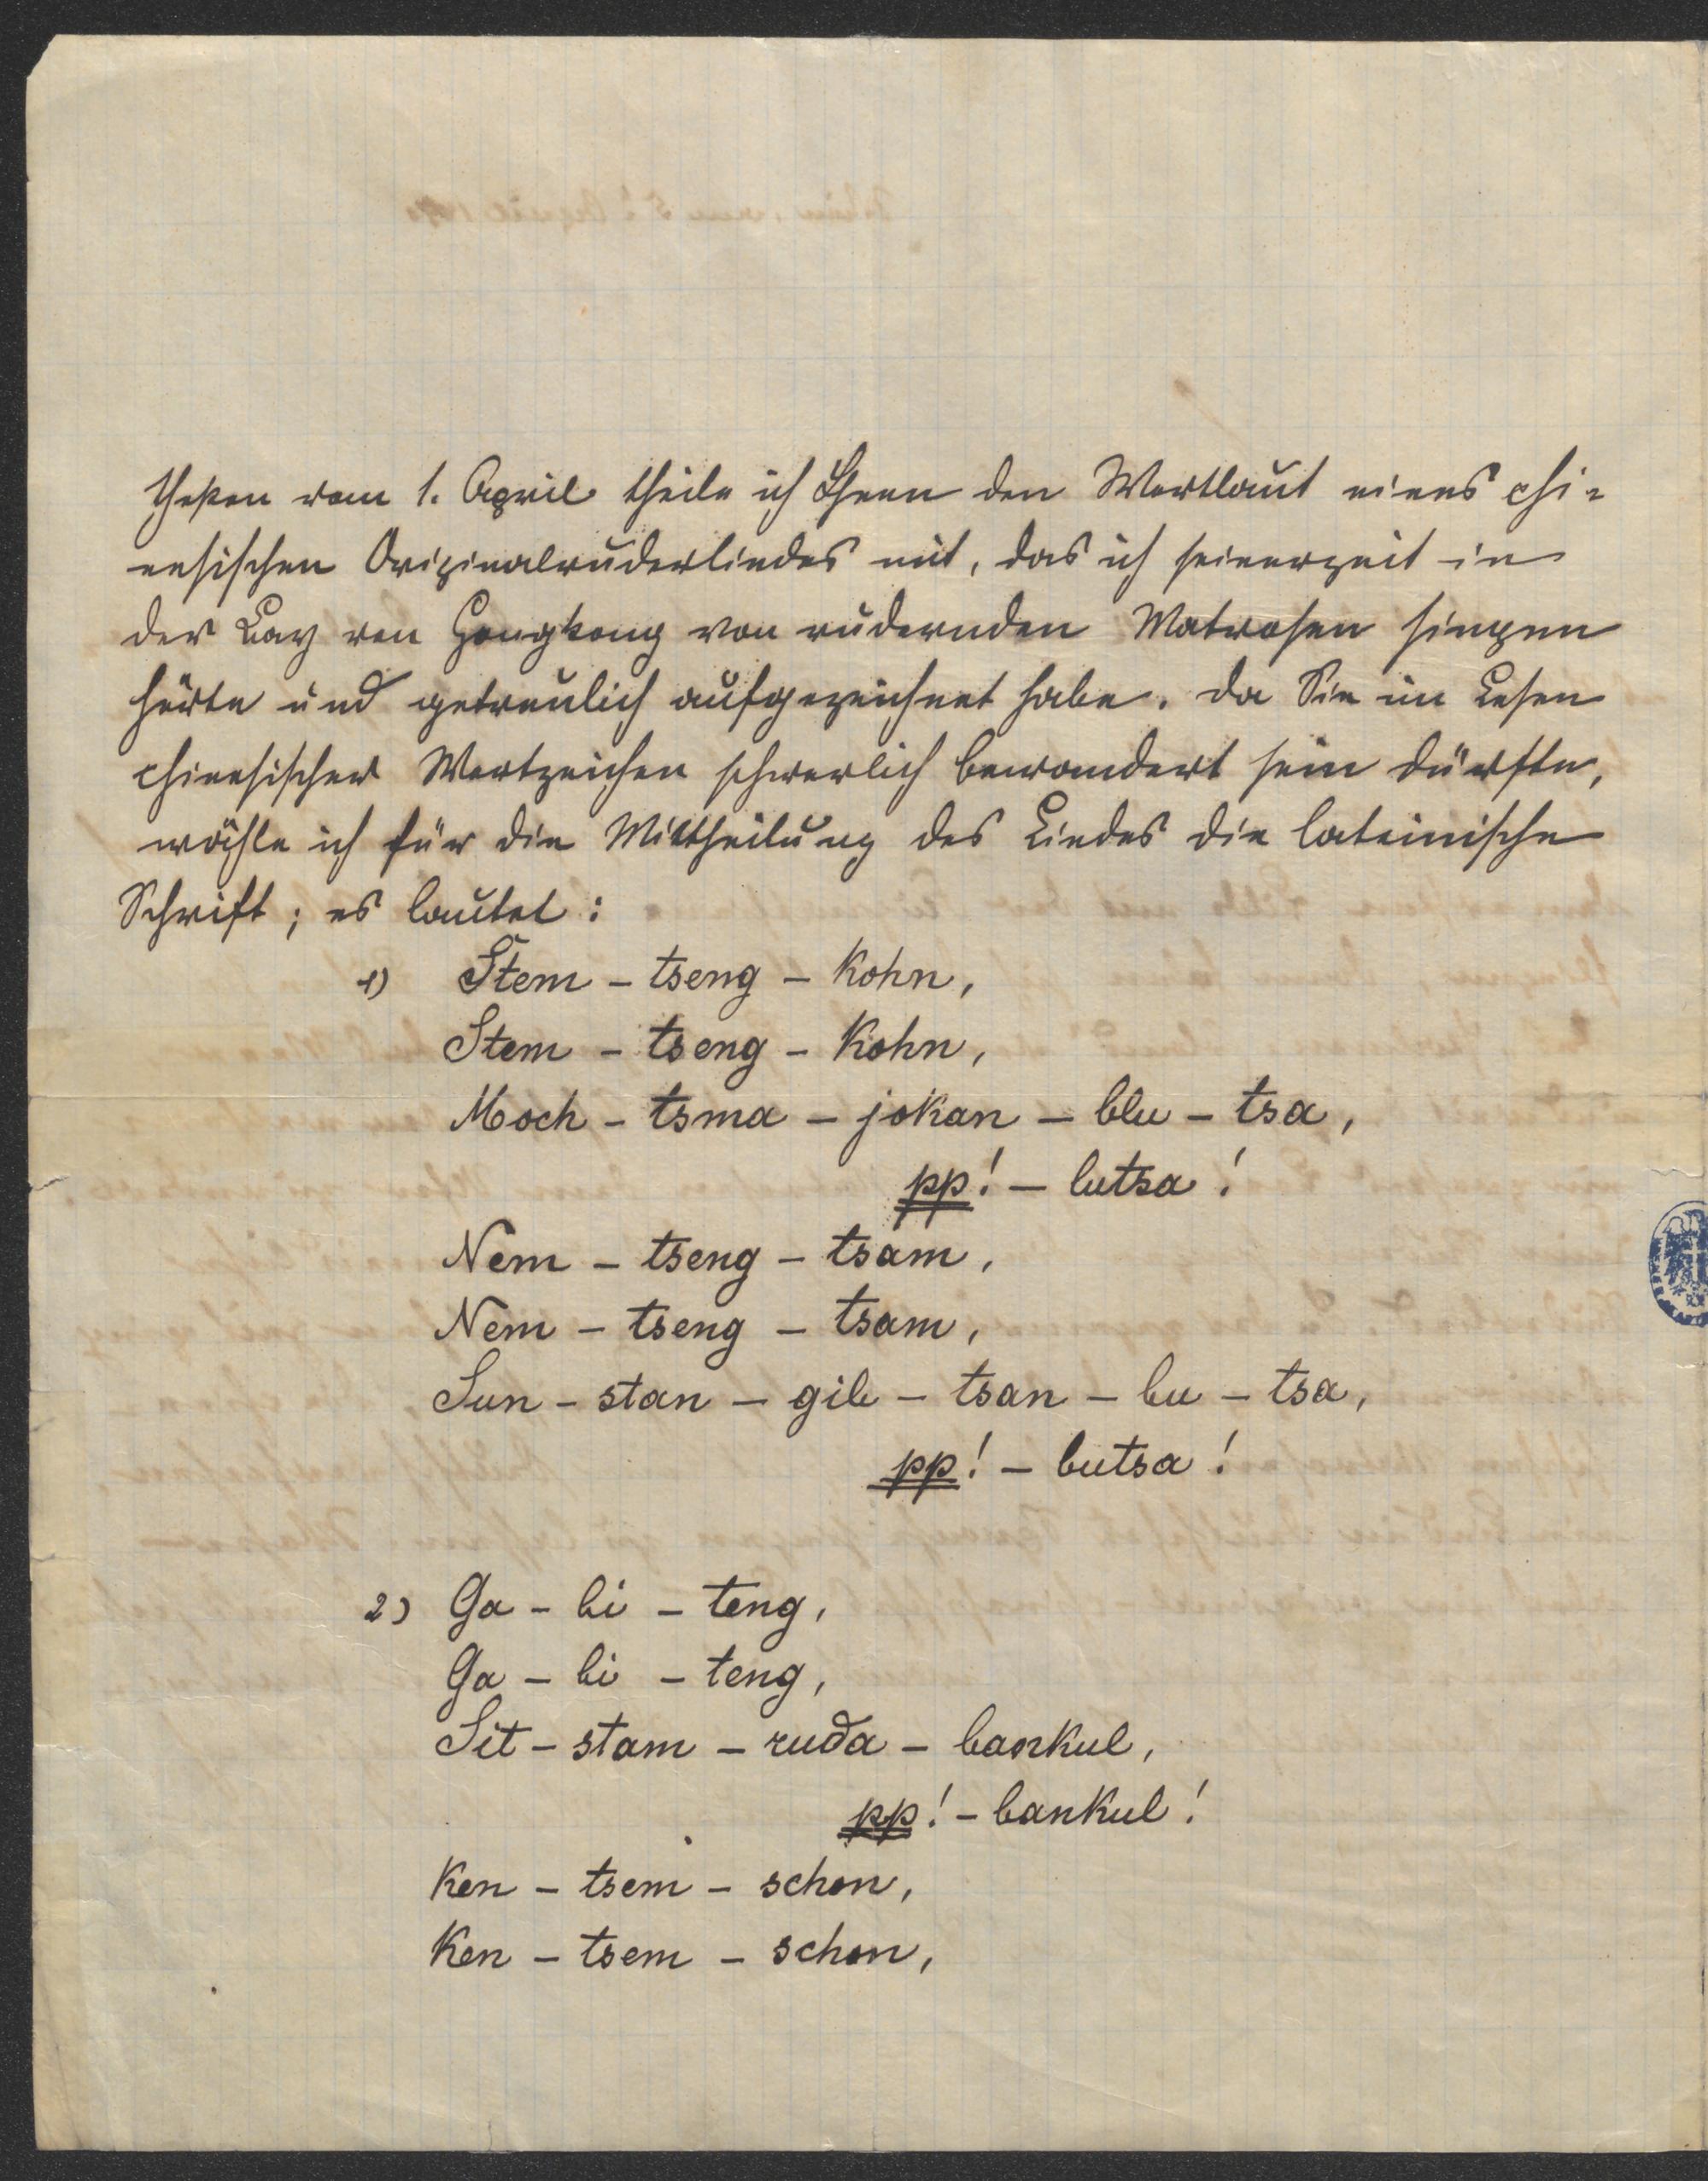 theken vom 1. April theile ich Ihnen den Wortlaut eines chi-
nesischen Originalruderliedes mit, das ich seinerzeit in
der Bay von Hongkong von rudernden Matrosen singen
hörte und getreulich aufgezeichnet habe. Da Sie im Lesen
chinesischer Wortzeichen schwerlich bewandert sein dürften,
wähle ich für die Mittheilung des Liedes die lateinische
Schrift; es lautet:
1) Stem - tseng - Kohn,
Stem - tseng - Kohn,
Moch - tsma - jokan - blu - tsa,
pp! - lutsa!
Nem - tseng - tsam,
Nem - tseng - tsam,
Sun - stan - gib - tsan - bu - tsa,
pp! - butsa!
2) Ga - bi - teng,
Ga - bi - teng,
Sit - stam - ruda - bankul,
pp! - bankul!
Ken - tsem - schon,
Ken - tsem - schon,